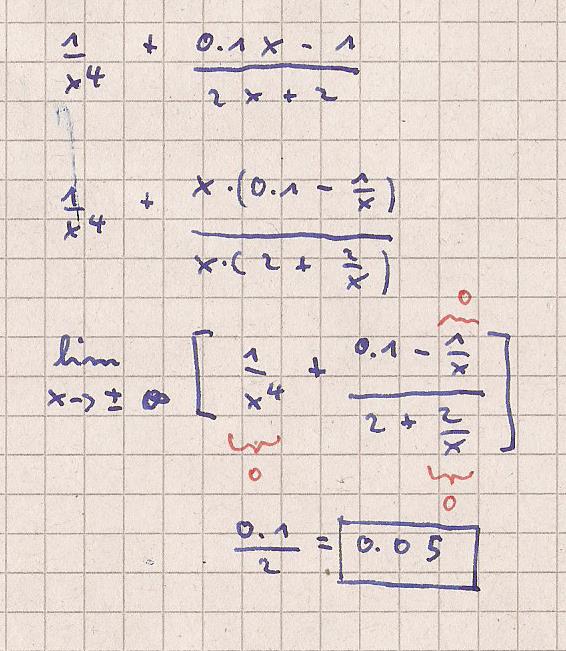 1/x⁴ + (0.1x - 1)/(2x + 2)
1/x⁴ + (x·(0.1 - 1/x))/(x·(2 + 2/x))
0
lim x→±∞ [1/x⁴ + (0.1 - 1/x)/(2 + 2/x)]
0 0
0.1/2 = 0.05